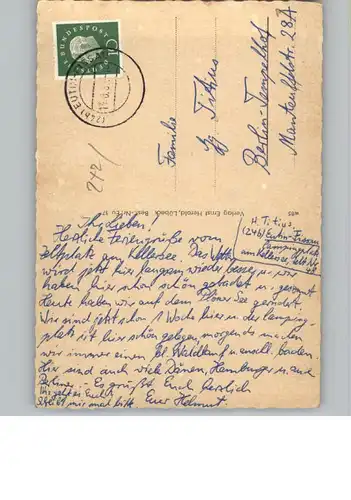 DEUTSCHE BUNDESPOST
(24b) EUTIN
Familie
Titius
Berlin-Tempelhof
Manteuffelstr. 28A
Verlag Ernst Herold, Lübeck
H. Titius,
(24b) Eutin-Fissau
Campingplatz
am Kellersee, Zelt Nr.
Ihr Lieben!
Herzliche Feriengrüße vom
Zeltplatz am Kellersee. Das Wetter
wird jetzt hier langsam wieder besser u. wir
haben hier schon schön gebadet u. gesonnt
Heute haben wir auf dem Plöner See gerudert.
Wir sind jetzt schon 1 Woche hier u. der Camping-
platz ist hier schön gelegen morgends machen
wir immer einen kl. Waldlauf u. anschl. baden.
Hier sind auch viele Dänen, Hamburger u. auch
Berliner. Es grüßt Euch herzlich
Wie geht es Euch?
Schreibt mir mal bitte. Euer Helmut.